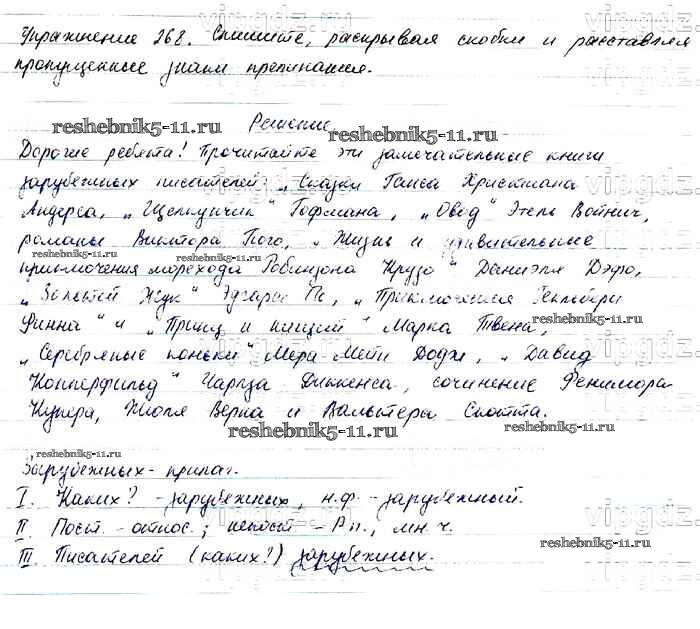 Упражнение 268. Спишите, раскрывая скобки и расставляя
пропущенные знаки препинания.
Решение.
reshebnik5-11.ru
Дорогие ребята! Прочитайте эти замечательные книги
зарубежных писателей: „Сказки Ганса Христиана
Андерса, „Щелкунчик" Гофмана, „Овод" Этель Войнич,
романы Виктора Гюго, „Жизнь и удивительные
reshebnik5-11.ru
приключения морехода Робинзона Крузо" Даниэля Дефо,
„Золотой Жук" Эдгара По, „Приключения Гекльбери
reshebnik5-11.ru
Финна" и „Принц и нищий" Марка Твена,
„Серебряные коньки" Мери Додж, „Давид
Копперфильд" Чарлза Диккенса, сочинение Фенимора
Купера, Жюля Верна и Вальтера Скотта.
reshebnik5-11.ru
reshebnik5-11.ru
Зарубежных - прилаг.
I. Каких? - зарубежных, н.ф. - зарубежный.
II. Пост. - относ.; непост - Р.п., мн.ч.
III. Писателей (каких?) зарубежных.
reshebnik5-11.ru
vipgdz.ru